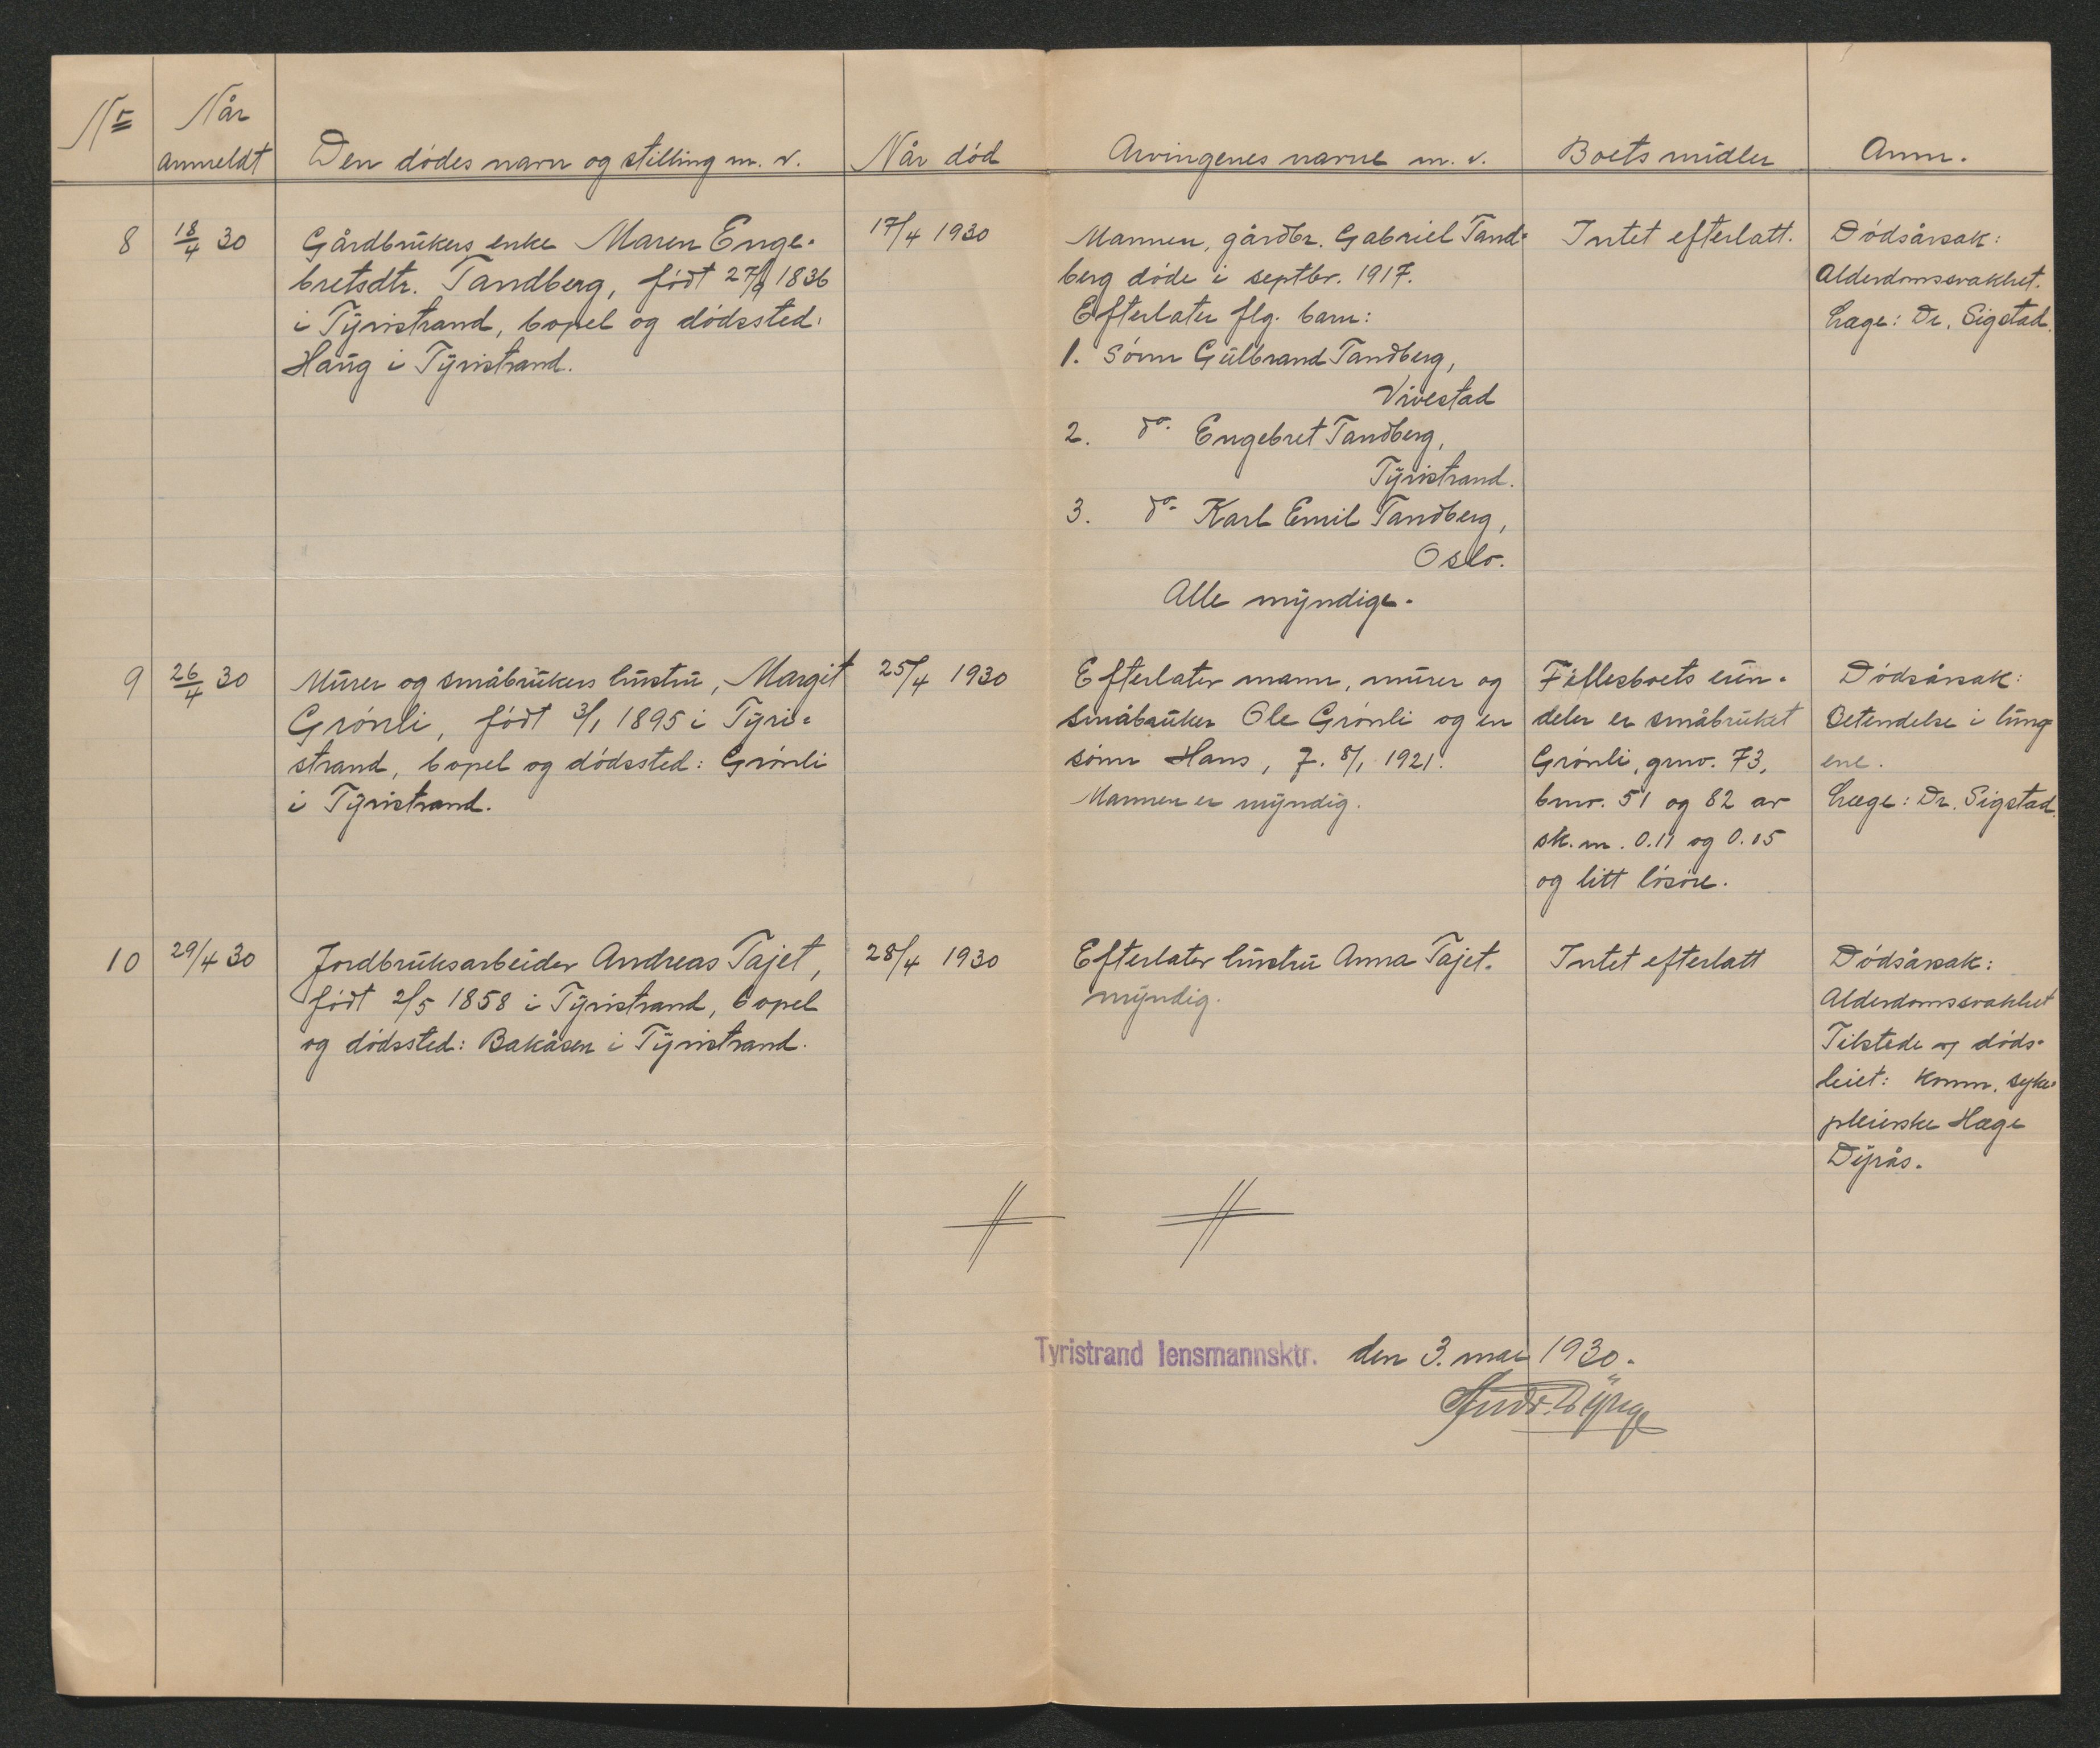 Nr
Når
anmeldt
Den dødes navn og stilling m. v.
Når død
Arvingenes navne m. v.
Boets midler
Anm.
8
18/4 30
Gårdbrukers enke Maren Enge-
bretsdtr. Tandberg, født 27/9 1836
i Tyristrand, bopel og dødssted:
Haug i Tyristrand.
17/4 1930
Mannen, gårdbr. Gabriel Tand-
berg døde i septbr. 1917.
Efterlater flg. barn:
1. Sønn Gulbrand Tandberg,
Vivestad
2. do. Engebret Tandberg,
Tyristrand.
3. do. Karl Emil Tandberg,
Oslo.
Alle myndige.
Intet efterlatt.
Dødsårsak:
Alderdomssvakhet.
Læge: Dr. Sigstad.
9
26/4 30
Murer og småbrukers hustru, Margit
Grønli, født 3/1 1895 i Tyri-
strand, bopel og dødssted: Grønli
i Tyristrand.
25/4 1930
Efterlater mann, murer og
småbruker Ole Grønli og en
sønn Hans, f. 8/1 1921.
Mannen er myndig.
Fellesboets eien-
deler er småbruket
Grønli, grnv. 73,
bnr. 51 og 82 av
sk. m. 0.11 og 0.05
og litt løsøre.
Dødsårsak:
Betendelse i lung-
ene.
Læge: Dr. Sigstad.
10
29/4 30
Jordbruksarbeider Andreas Tajet,
født 2/5 1858 i Tyristrand, bopel
og dødssted: Bakåsen i Tyristrand.
28/4 1930
Efterlater hustru Anna Tajet.
myndig.
Intet efterlatt
Dødsårsak:
Alderdomssvakhet
Tilstede v/ døds-
leiet: Komm. syke-
pleierske Hæge
Dyrås.
Tyristrand lensmannsktr. den 3. mai 1930.